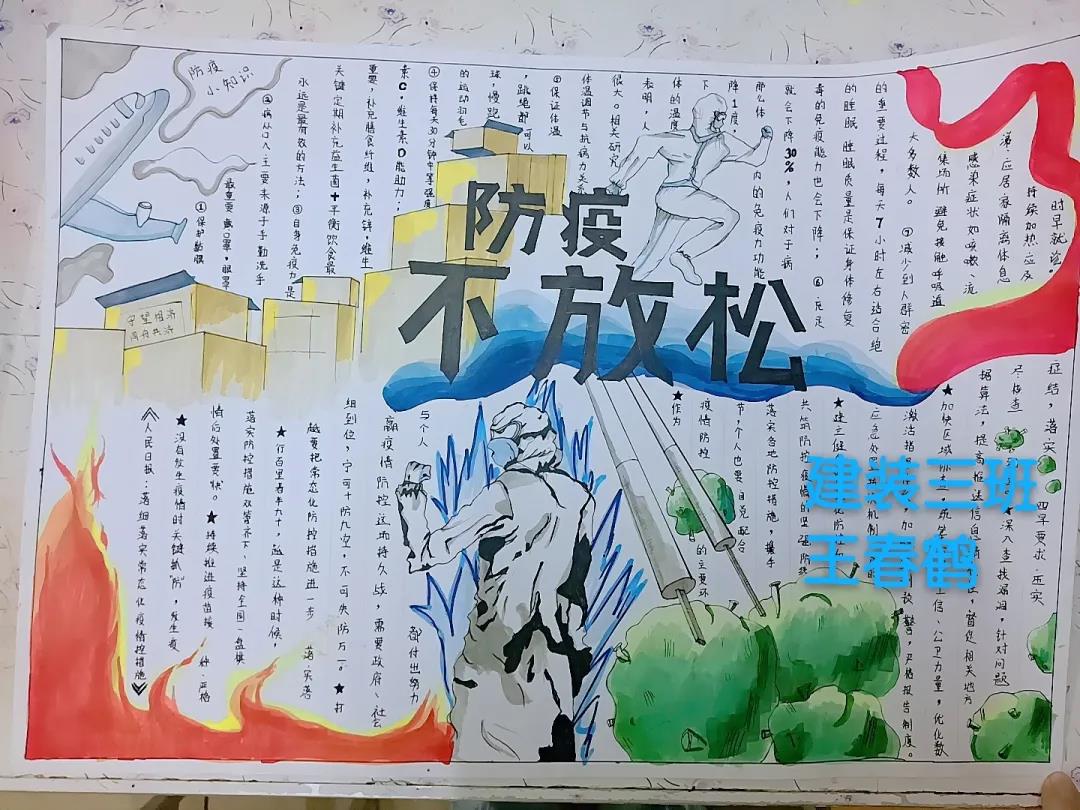 防疫
小知识
防疫
不放松
守望相济
同舟共济
时早就诊。
持续加热应及
涕,应居家隔离休息
感染症状如咳嗽、流
集场所 避免接触呼吸道
大多数人。⑦减少到人群密
的重要过程,每天7小时左右适合绝
的睡眠 睡眠质量是保证身体修复
毒的免疫能力也会下降;⑥充足
就会下降30%,人们对于病
那么体内的免疫力功能
降1度,
下
体的温度
表明,人
很大。相关研究
体温调节与抗病力关系
⑤保证体温
,跳绳都可以
球,慢跑
的运动羽毛
④保持每天30分钟中等强度
素C,维生素D能助力;
重要,补充膳食纤维,补充锌,维生
关键定期补充益生菌+平衡饮食最
永远是最有效的方法;③自身免疫力是
②病从口入主要来源于手勤洗手
最重要 戴口罩,眼罩
①保护黏膜
症结,落实
四早要求·压实
尽核查
★深入查找漏洞,针对问题
据算法,提高推送信息
督促相关地方
★加快区域协查
信、公卫力量,优化数
激活指
警,严格报告制度。
应急处
机制
★建立健全
化防控
共筑防控疫情的坚强防
落实各地防控措施,携手
节,个人也要自觉配合
疫情防控
的主要环
★作为
与个人
都付出努力
赢疫情防控这场持久战,需要政府、社会
细到位,宁可十防九空,不可失防万一。★打
越要把常态化防控措施进一步
落实落
★行百里者半九十,越是这种时候,
落实防控措施双管齐下、坚持全国一盘棋
情后处置要快。★持续推进疫苗接
种·严格
★没有发生疫情时关键抓"防",发生疫
《人民日报:落细落实常态化疫情控措施》
建装三班
王春鹤